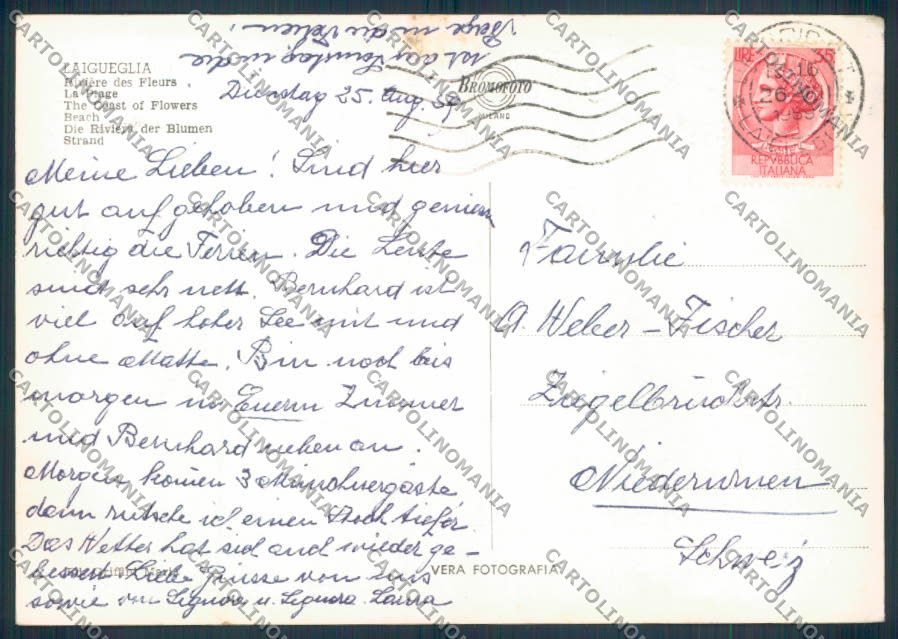 LAIGUEGLIA
Rivière des Fleurs
La Plage
The Coast of Flowers
Beach
Die Riviera der Blumen
Strand
Dienstag 25. Aug 59
Meine Lieben! Sind hier
gut aufgehoben und geniessen
richtig die Ferien. Die Leute
sind sehr nett. Bernhard ist
viel auf hoher See mit und
ohne Matte. Bin noch bis
morgen in Euerm Zimmer
und Bernhard neben an.
Morgen komen 3 Münchnergäste
dann rutsche ich einen Stock tiefer
Das Wetter hat sich auch wieder ge-
bessert. Liebe Grüsse von uns
sowie von Signore u. Signora Laura
BROMOFOTO
MILANO
LIRE 35
REPVBBLICA
ITALIANA
Familie
A. Weber-Fischer
Ziegelbrückstr.
Niederurnen
Schweiz
VERA FOTOGRAFIA
CARTOLINOMANIA